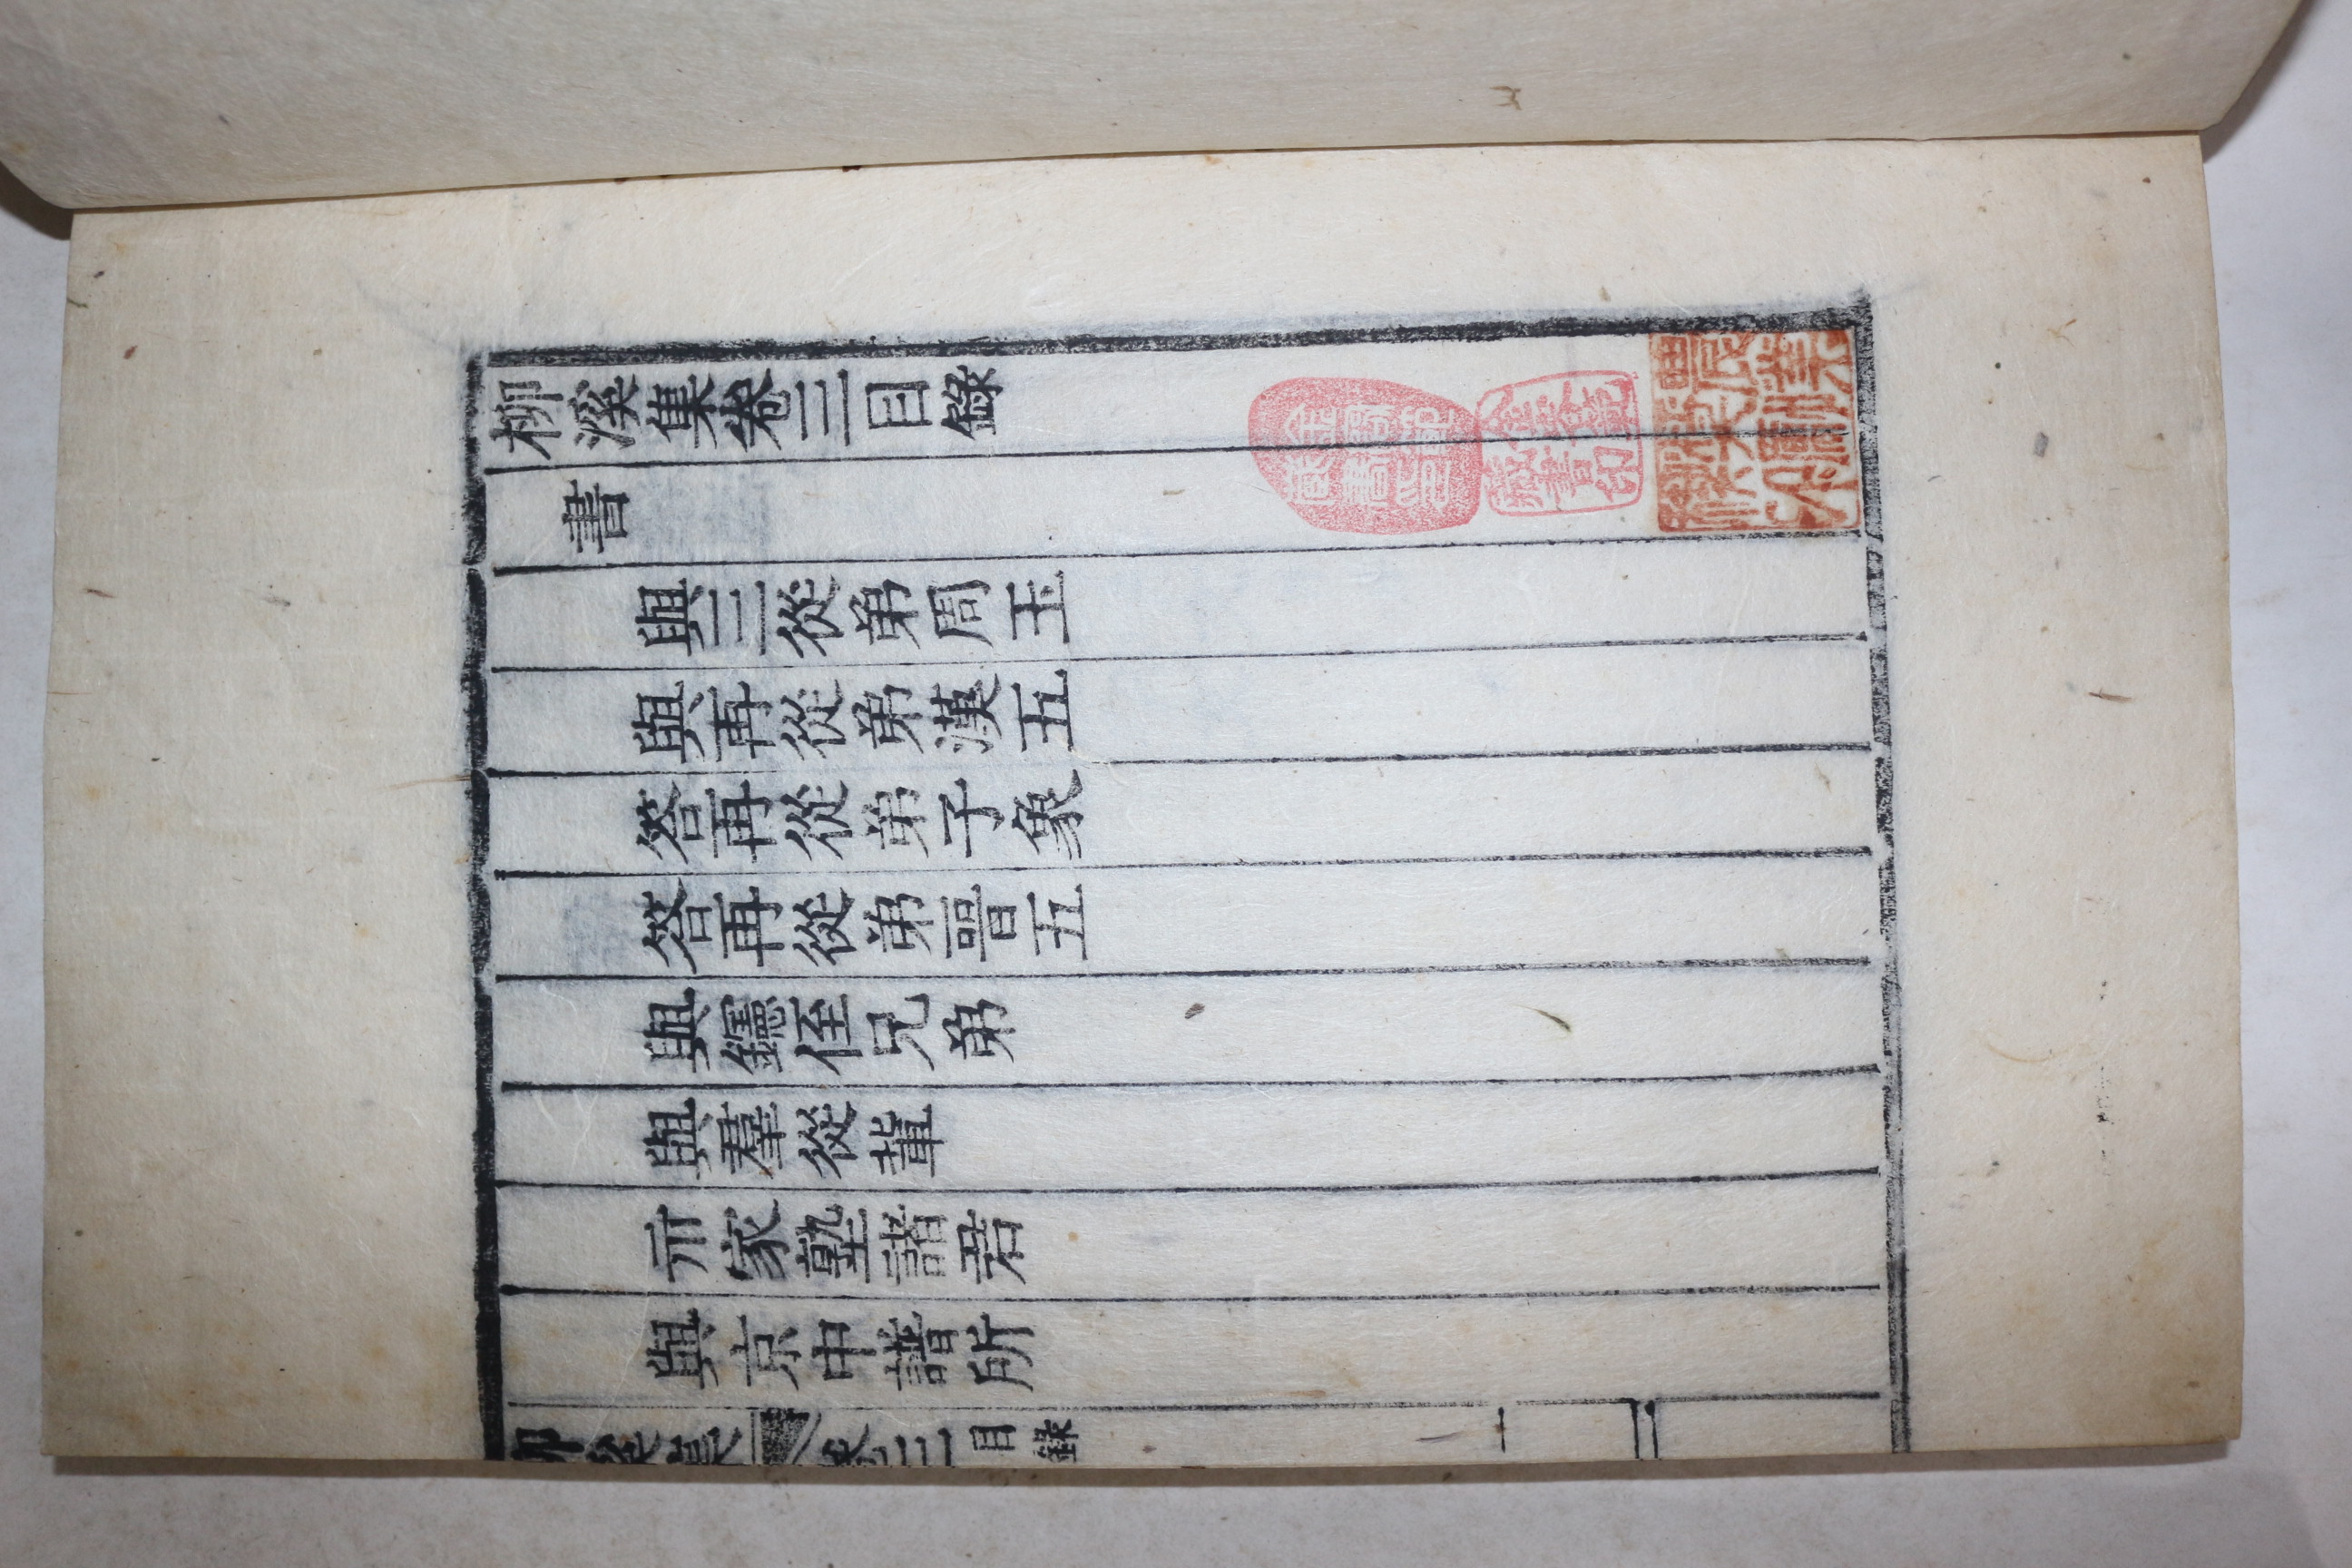 柳溪集卷三目錄
書
與三從弟周玉
與再從弟漢五
答再從弟子象
答再從弟晋五
與鑐侄兄弟
與羣從輩
示家塾諸君
與京中譜所
柳溪集 卷三目錄 一